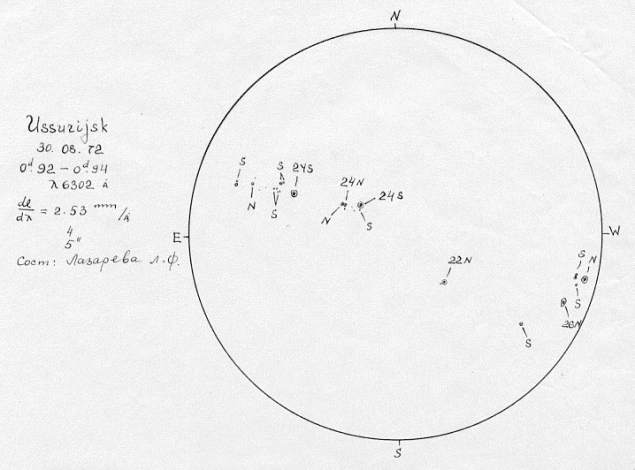 N
Ussurijsk
30. 08. 72
0d 92 – 0d. 94
λ 6302 Å
dl/dλ = 2.53 mm/Å
4
5"
Сост: Лазарева Л.Ф.
S
S 24S
N
S
24N
24S
N
S
E
W
22N
S N
S
26N
S
S